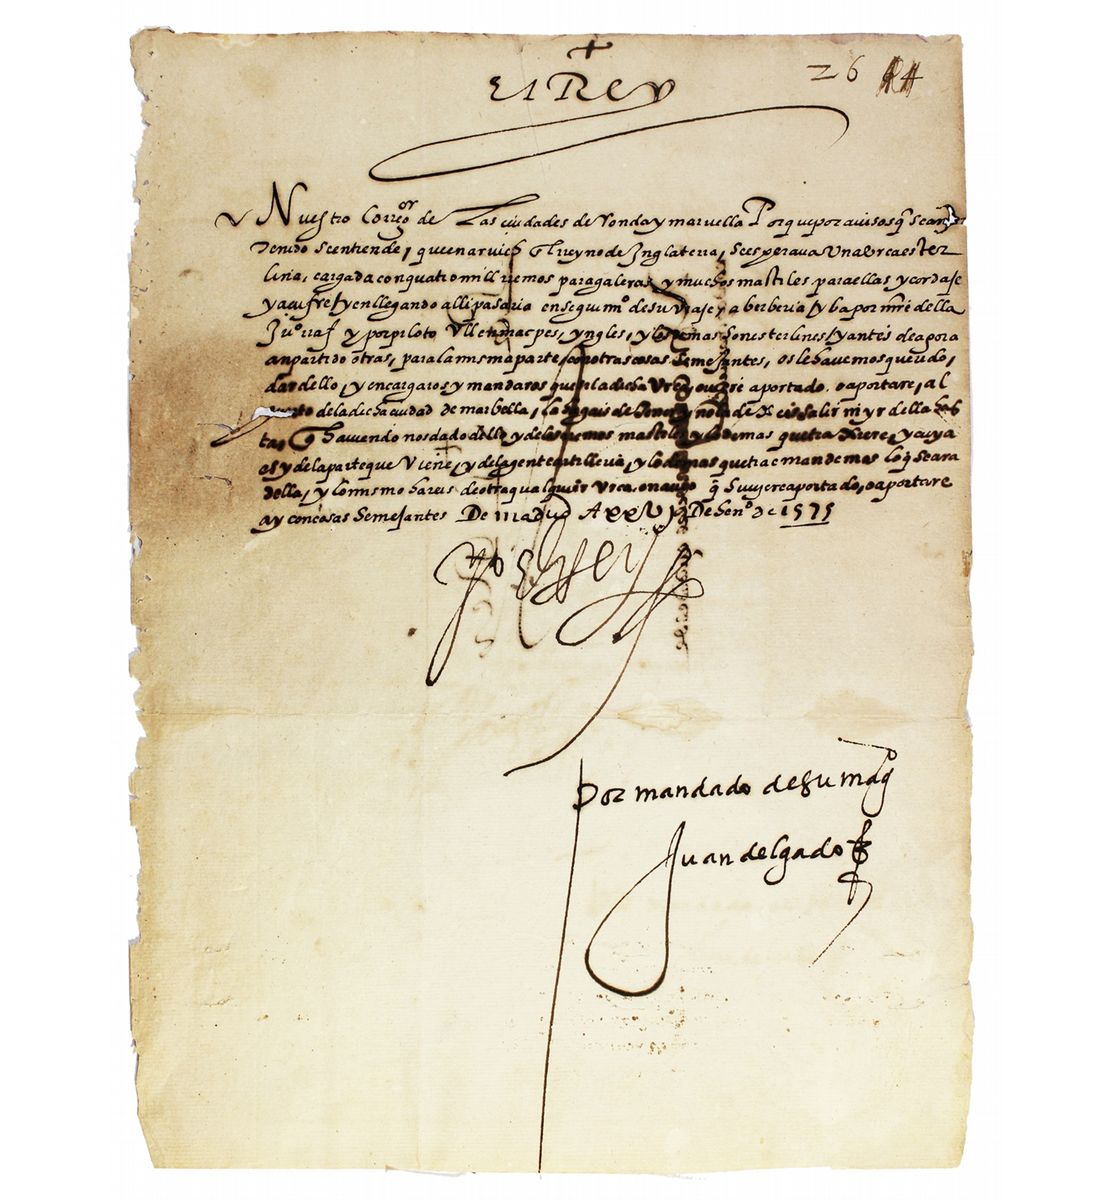 26
El Rey
Nuestro Corregor de Las ciudades de Ronda y marvella Porque por avisos q se an
tenido se entiende, que en el reyno de Inglaterra, se esperava Una Urca ester
lina, cargada con quatro mill rremos para galeras y muchos mastiles para ellas y cordaje
y açufre, y en llegando alli pasaria en seguimo de su Viaje, a berberia, y ba por mre della
y por piloto ingles, y los demas son esterlines, y antes de aora
an partido otras, para la misma parte, con otras cosas semejantes, os le havemos querido,
dar dello, y encargaros y mandaros que si la dicha Urca oviere aportado. o aportare, al
puerto de la dicha ciudad de marbella, la hagais detener, y no la dexeis salir ni yr della has
ta q haviendo nos dado dello y de los remos mastiles y lo demas que traxere, y cuya
es y de la parte que Viene, y de la gente artilleria, y lo demas que trae mandemos lo q se ara
della, y lo mismo hareis de otra qualquier Urca, o navio q huviere aportado, o aportare
ay con cosas semejantes De madrid A xxvi De heno de 1575
yo el Rey
Por mandado de su magd
Juan delgado